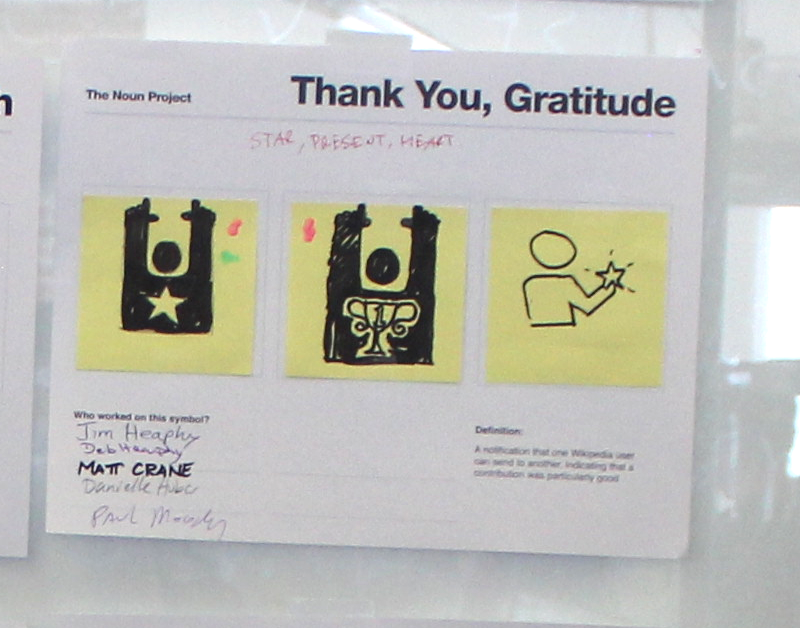 The Noun Project
Thank You, Gratitude
STAR, PRESENT, HEART
1
Who worked on this symbol?
Jim Heaphy
Deb Heaphy
MATT CRANE
Danielle
Paul
Definition:
A notification that one Wikipedia user
can send to another, indicating that a
contribution was particularly good